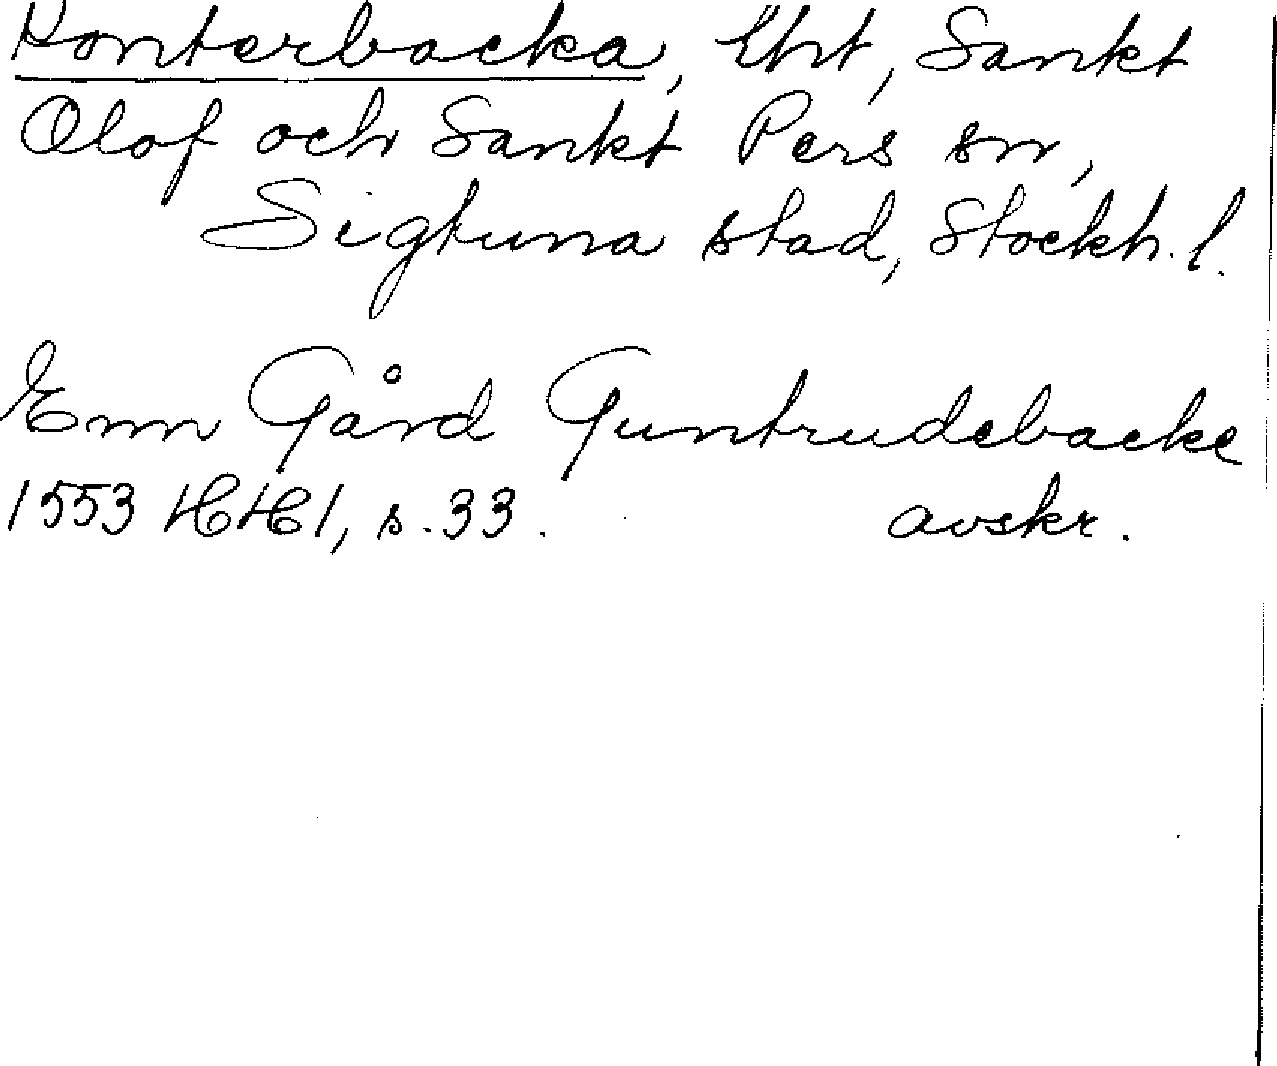 Konterbacka, lht, Sankt
Olof och Sankt Pers sn,
Sigtuna stad, Stockh. l.
Enn Gård Guntrudebacke
1553 HH1, s. 33. avskr.